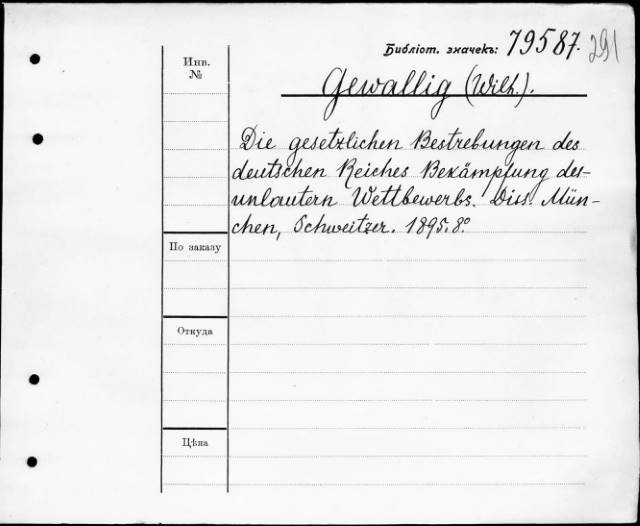 Библіот. значекъ: 79587. 291
Инв.
№
Gewallig (Wilh.).
Die gesetzlichen Bestrebungen des
deutschen Reiches Bekämpfung des-
unlautern Wettbewerbs. Diss. Mün-
chen, Schweitzer. 1895. 8º.
По заказу
Откуда
Цѣна